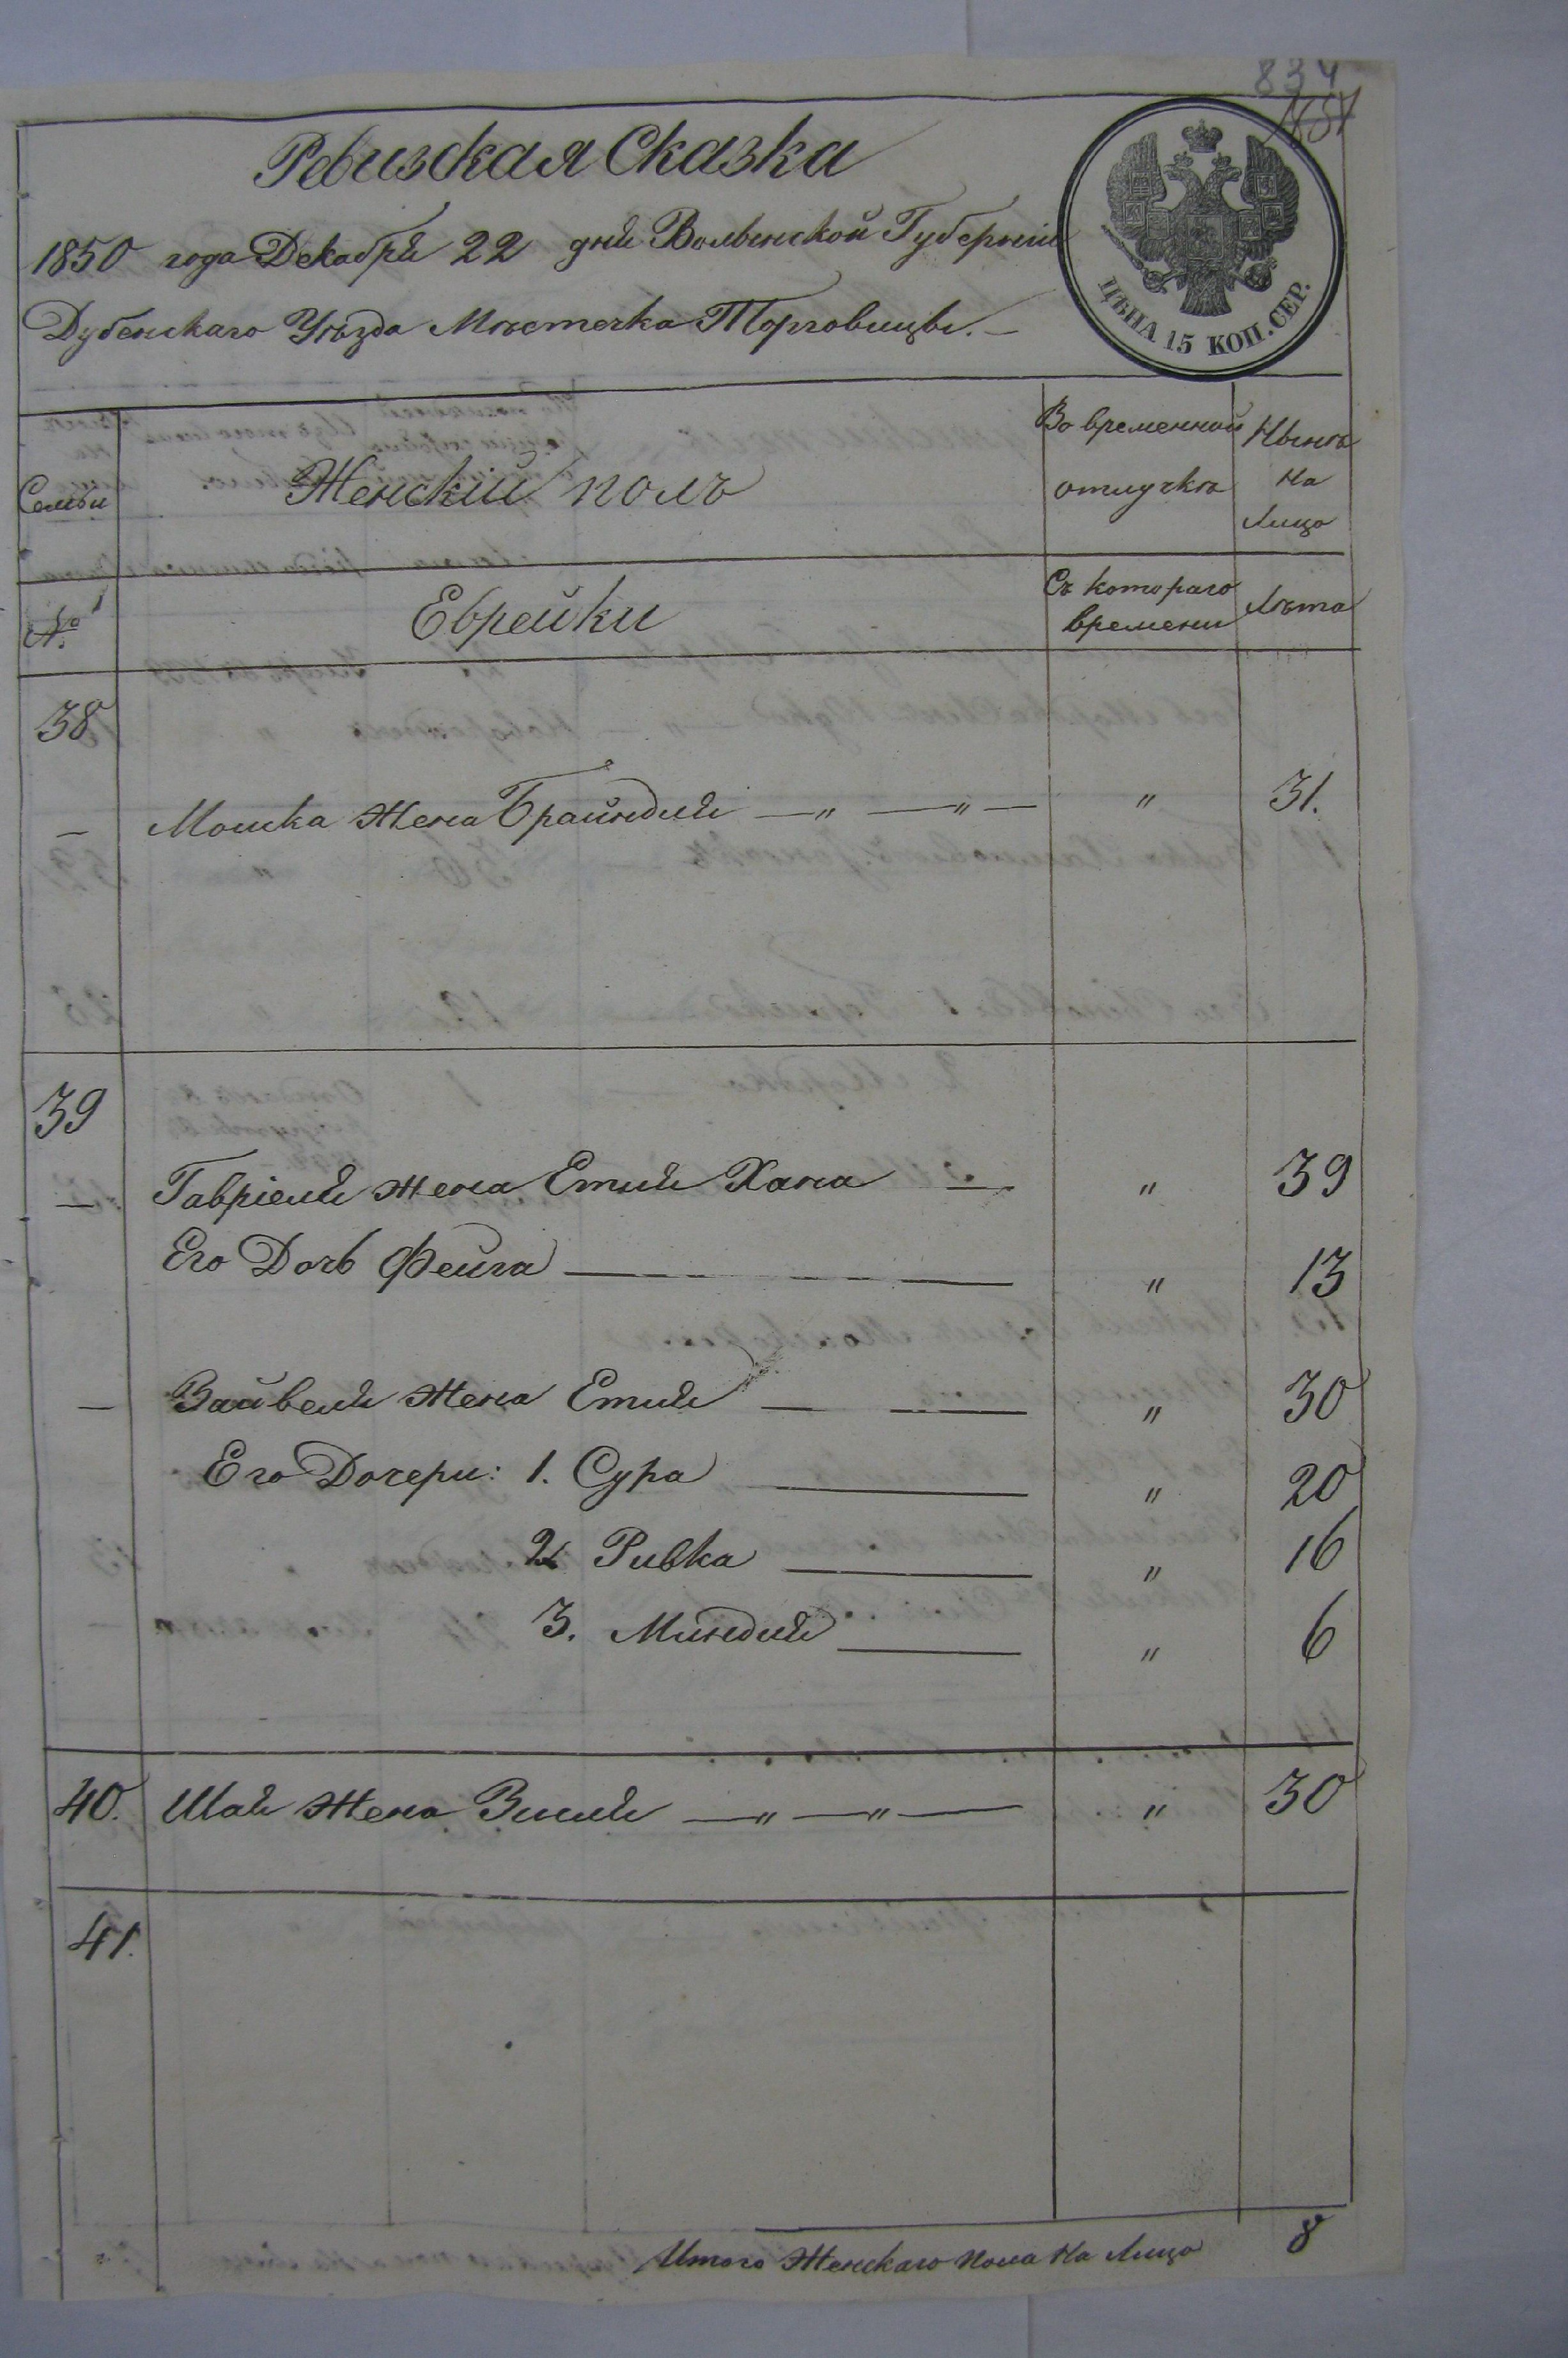 834
Ревизская Сказка
1850 года Декабря 22 дня Волынской Губерніи
Дубенскаго Уѣзда Мѣстечка Торговицы. —
ЦѢНА 15 КОП. СЕР.
Семьи
Женскій полъ
Во временной отлучкѣ
Нынѣ на Лицо
№
Еврейки
Съ котораго времени
Лѣта
38
— Мошка жена Брайндля — „ — „ — „ 31.
39
— Гавріеля жена Етля Хана — „ 39
Его Дочь Фейга — „ 13
— Вайвеля жена Етля — — „ 30
Его Дочери: 1. Сура — „ 20
2. Ривка — „ 16
3. Миндля — „ 6
40. Шаи жена Зисля — „ — „ — „ 30
41.
Итого Женскаго пола на Лицо 8